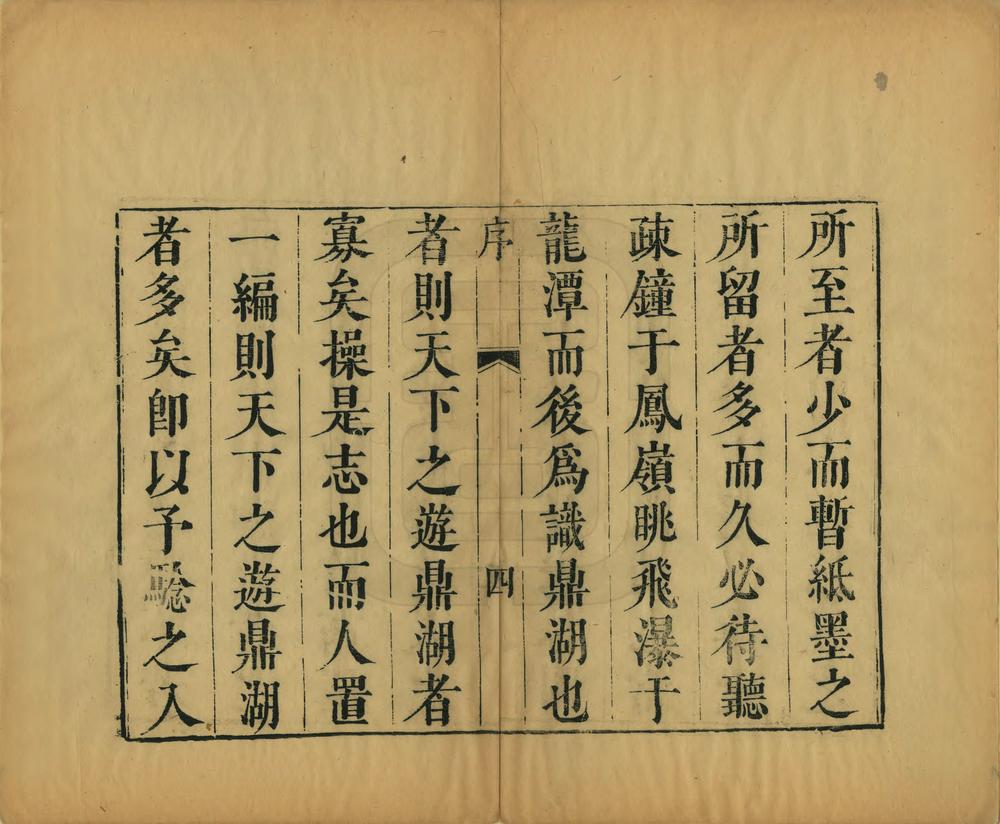 所至者少而暫紙墨之
所留者多而久必待聽
疎鐘于鳳嶺眺飛瀑于
龍潭而後爲識鼎湖也
序 四
者則天下之遊鼎湖者
寡矣操是志也而人置
一編則天下之遊鼎湖
者多矣卽以予騐之入